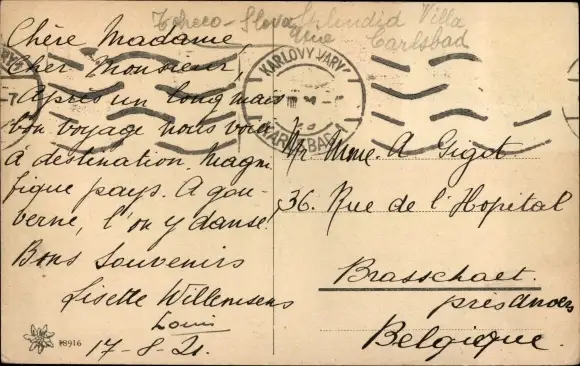 Tcheco-Slova Splendid Villa
quie Carlsbad
Chère Madame,
Cher Monsieur,
Après un long mais
bon voyage nous voici
à destination. Magni
fique pays. A gou-
verne, l'on y danse!
Bons Souvenirs
Lisette Willemsens
Louis
17-8-21.
18916
KARLOVY VARY
KARLSBAD
Mr Mme. A Gigot
36. Rue de l'Hopital
Brasschaet.
près Anvers
Belgique.